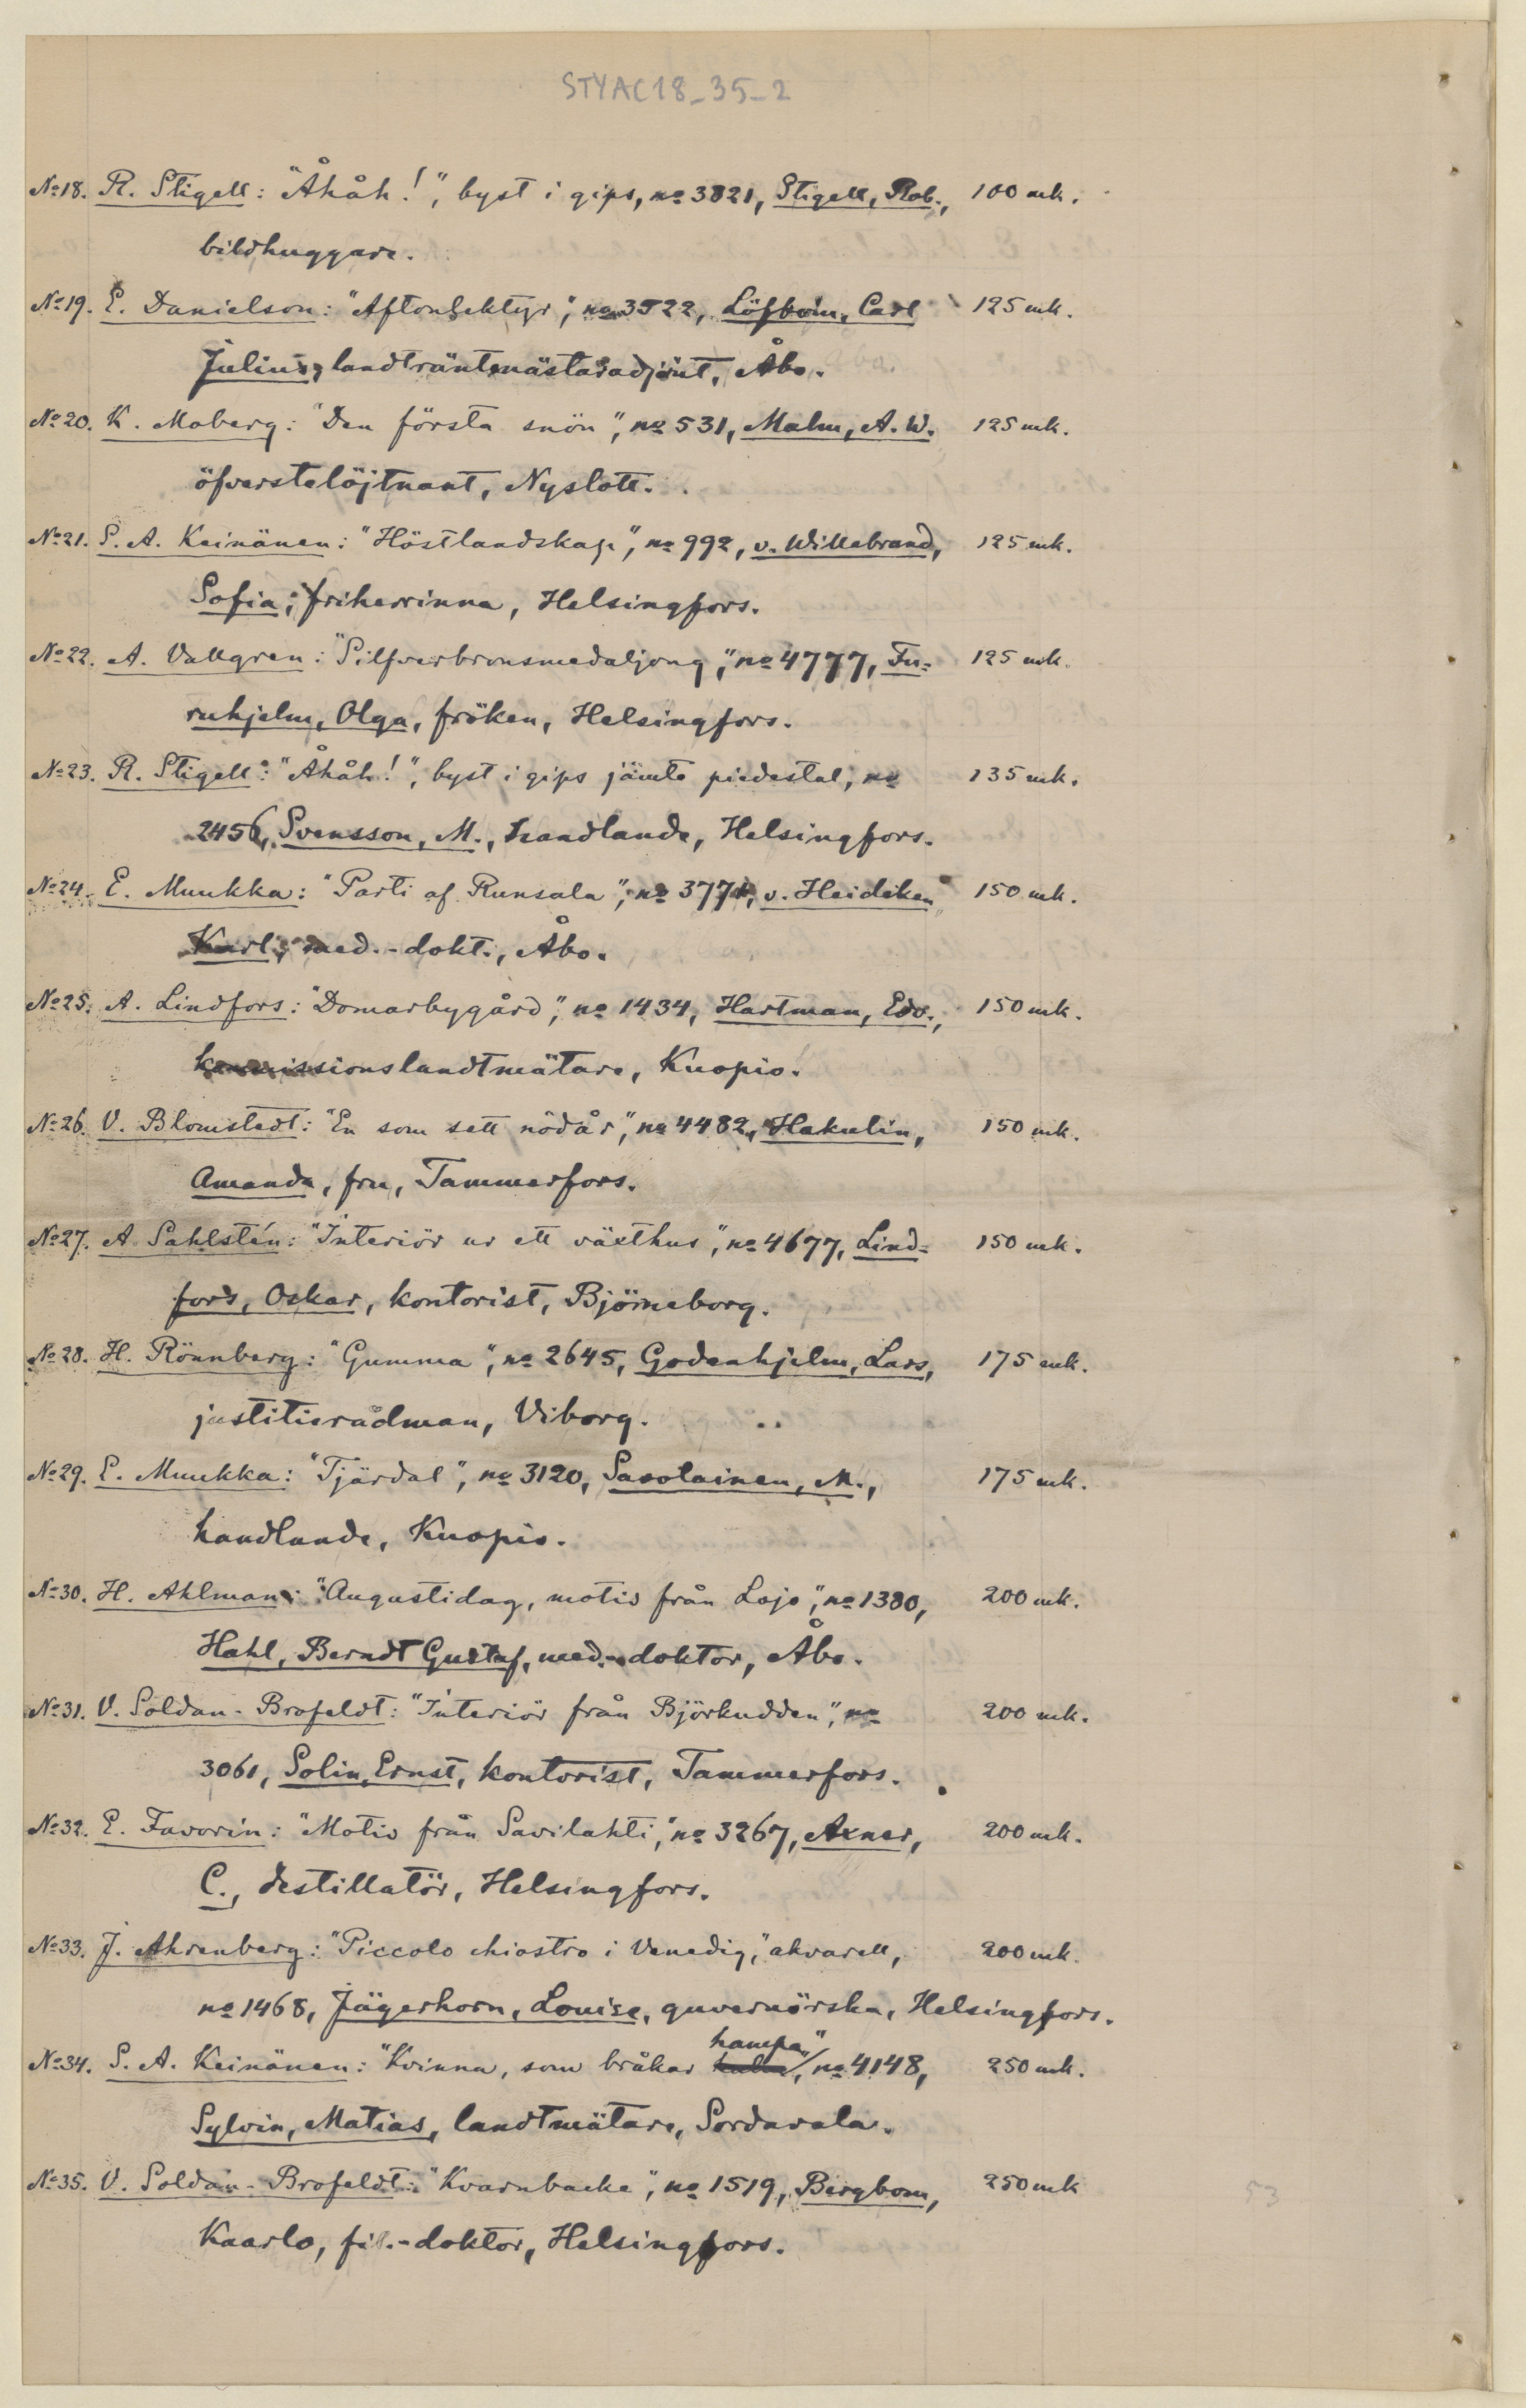 STYAC18_35_2
No 18. R. Stigell: "Åhåh!", byst i gips, no 3821, Stigell, Rob., 100 mk.
bildhuggare.
No 19. E. Danielson: "Aftonlektyr", no 3522, Löfbom, Carl 125 mk.
Julius, landträntmästaradjoint, Åbo.
No 20. K. Moberg: "Den första snön", no 531, Malm, A. W. 125 mk.
öfverstelöjtnant, Nyslott.
No 21. S. A. Keinänen: "Höstlandskap", no 992, v. Willebrand, 125 mk.
Sofia, friherrinna, Helsingfors.
No 22. A. Vallgren: "Silfverbronsmedaljong", no 4777, Fu= 125 mk.
ruhjelm, Olga, fröken, Helsingfors.
No 23. R. Stigell: "Åhåh!", byst i gips jämte piedestal, no 135 mk.
2456, Svensson, M., handlande, Helsingfors.
No 24. E. Muukka: "Parti af Runsala", no 3771, v. Heideken 150 mk.
Karl, med.-dokt., Åbo.
No 25. A. Lindfors: "Domarbygård", no 1434, Hartman, Edv., 150 mk.
kommissionslandtmätare, Kuopio.
No 26. V. Blomstedt: "En som sett nödår", no 4482, Hakulin, 150 mk.
Amanda, fru, Tammerfors.
No 27. A Sahlstén: "Interiör ur ett växthus", no 4677, Lind= 150 mk.
fors, Oskar, kontorist, Björneborg.
No 28. H. Rönnberg: "Gumma", no 2645, Godenhjelm, Lars, 175 mk.
justitierådman, Viborg.
No 29. E. Muukka: "Tjärdal", no 3120, Savolainen, M., 175 mk.
handlande, Kuopio.
No 30. H. Ahlman: "Augustidag, motiv från Lojo", no 1380, 200 mk.
Hahl, Berndt Gustaf, med.-doktor, Åbo.
No 31. V. Soldan-Brofeldt: "Interiör från Björkudden", no 200 mk.
3061, Solin, Ernst, kontorist, Tammerfors.
No 32. E. Favorin: "Motiv från Savilahti", no 3267, Axner, 200 mk.
C., destillatör, Helsingfors.
No 33. J. Ahrenberg: "Piccolo chiostro i Venedig", akvarell, 200 mk.
no 1468, Jägerhorn, Louise, guvernörska, Helsingfors.
hampa"
No 34. S. A. Keinänen: "Kvinna, som bråkar no 4148, 250 mk.
Sylvin, Matias, landtmätare, Sordavala.
No 35. V. Soldan-Brofeldt: "Kvarnbacke", no 1519, Bergbom, 250 mk
Kaarlo, fil.-doktor, Helsingfors.
53